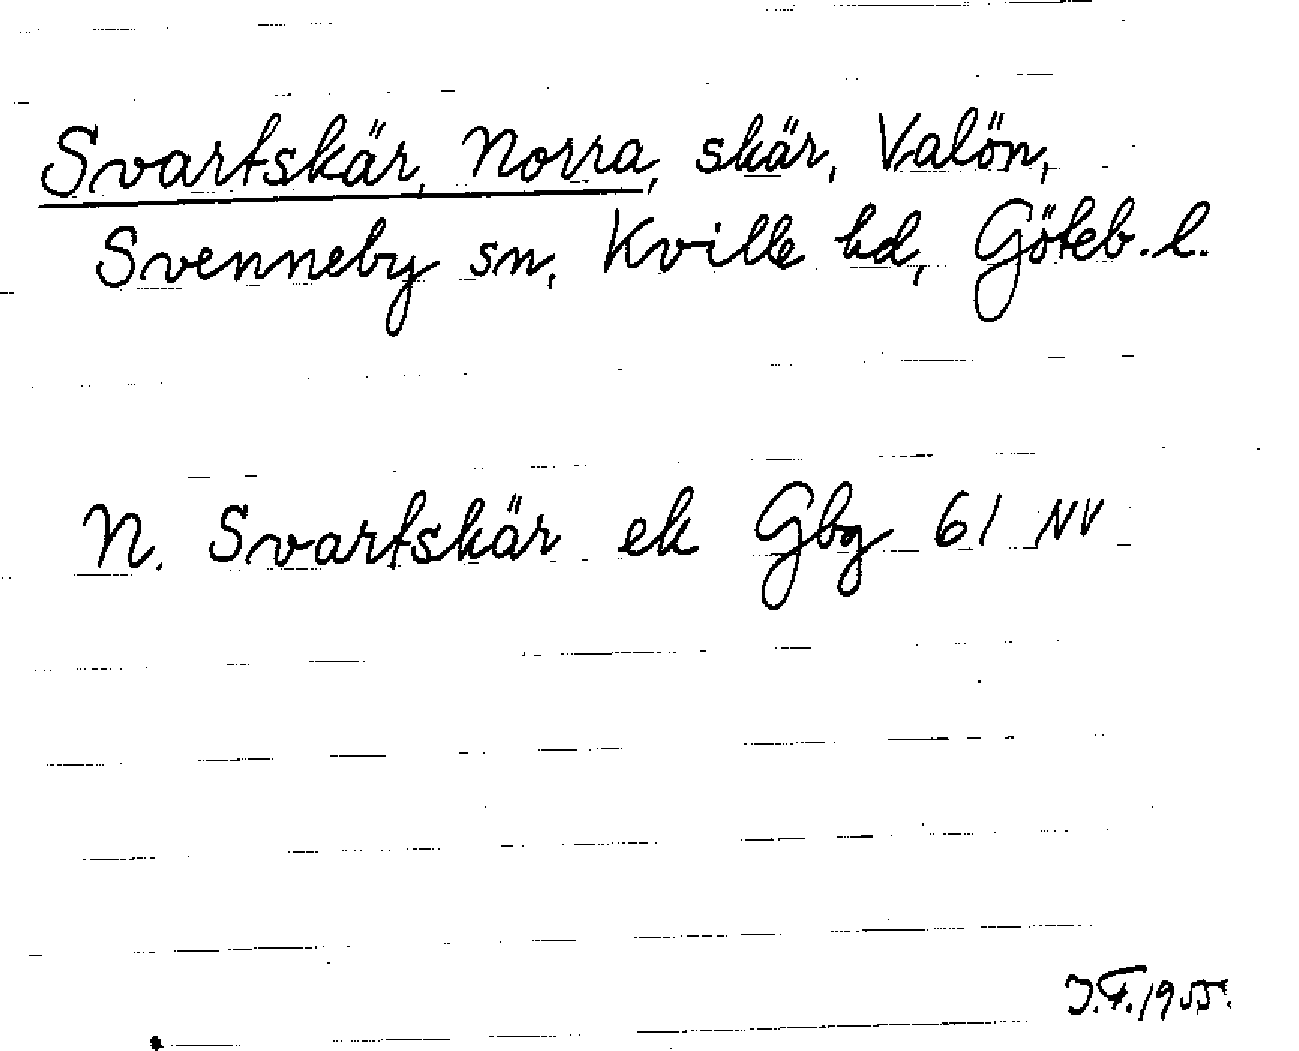 Svartskär, Norra, skär, Valön,
Svenneby sn, Kville hd, Göteb. l.
N. Svartskär ek Gbg 61 NV
J.F. 1955.